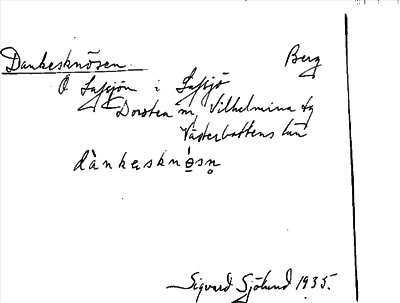 Dankesknösen. Berg
Ö Lafsjön i Lafsjö
Dorotea sn, Vilhelmina tg
Västerbottens län
dànkesknósn
Sigvard Sjölund 1935.